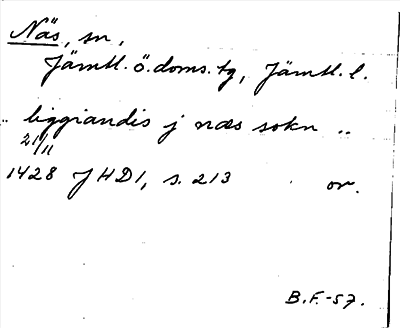 Näs, sn,
Jämtl. ö. doms. tg, Jämtl. l.
.. liggiandis j næs sokn ..
21/11
1428 JHD1, s. 213 or.
B.F.-57.